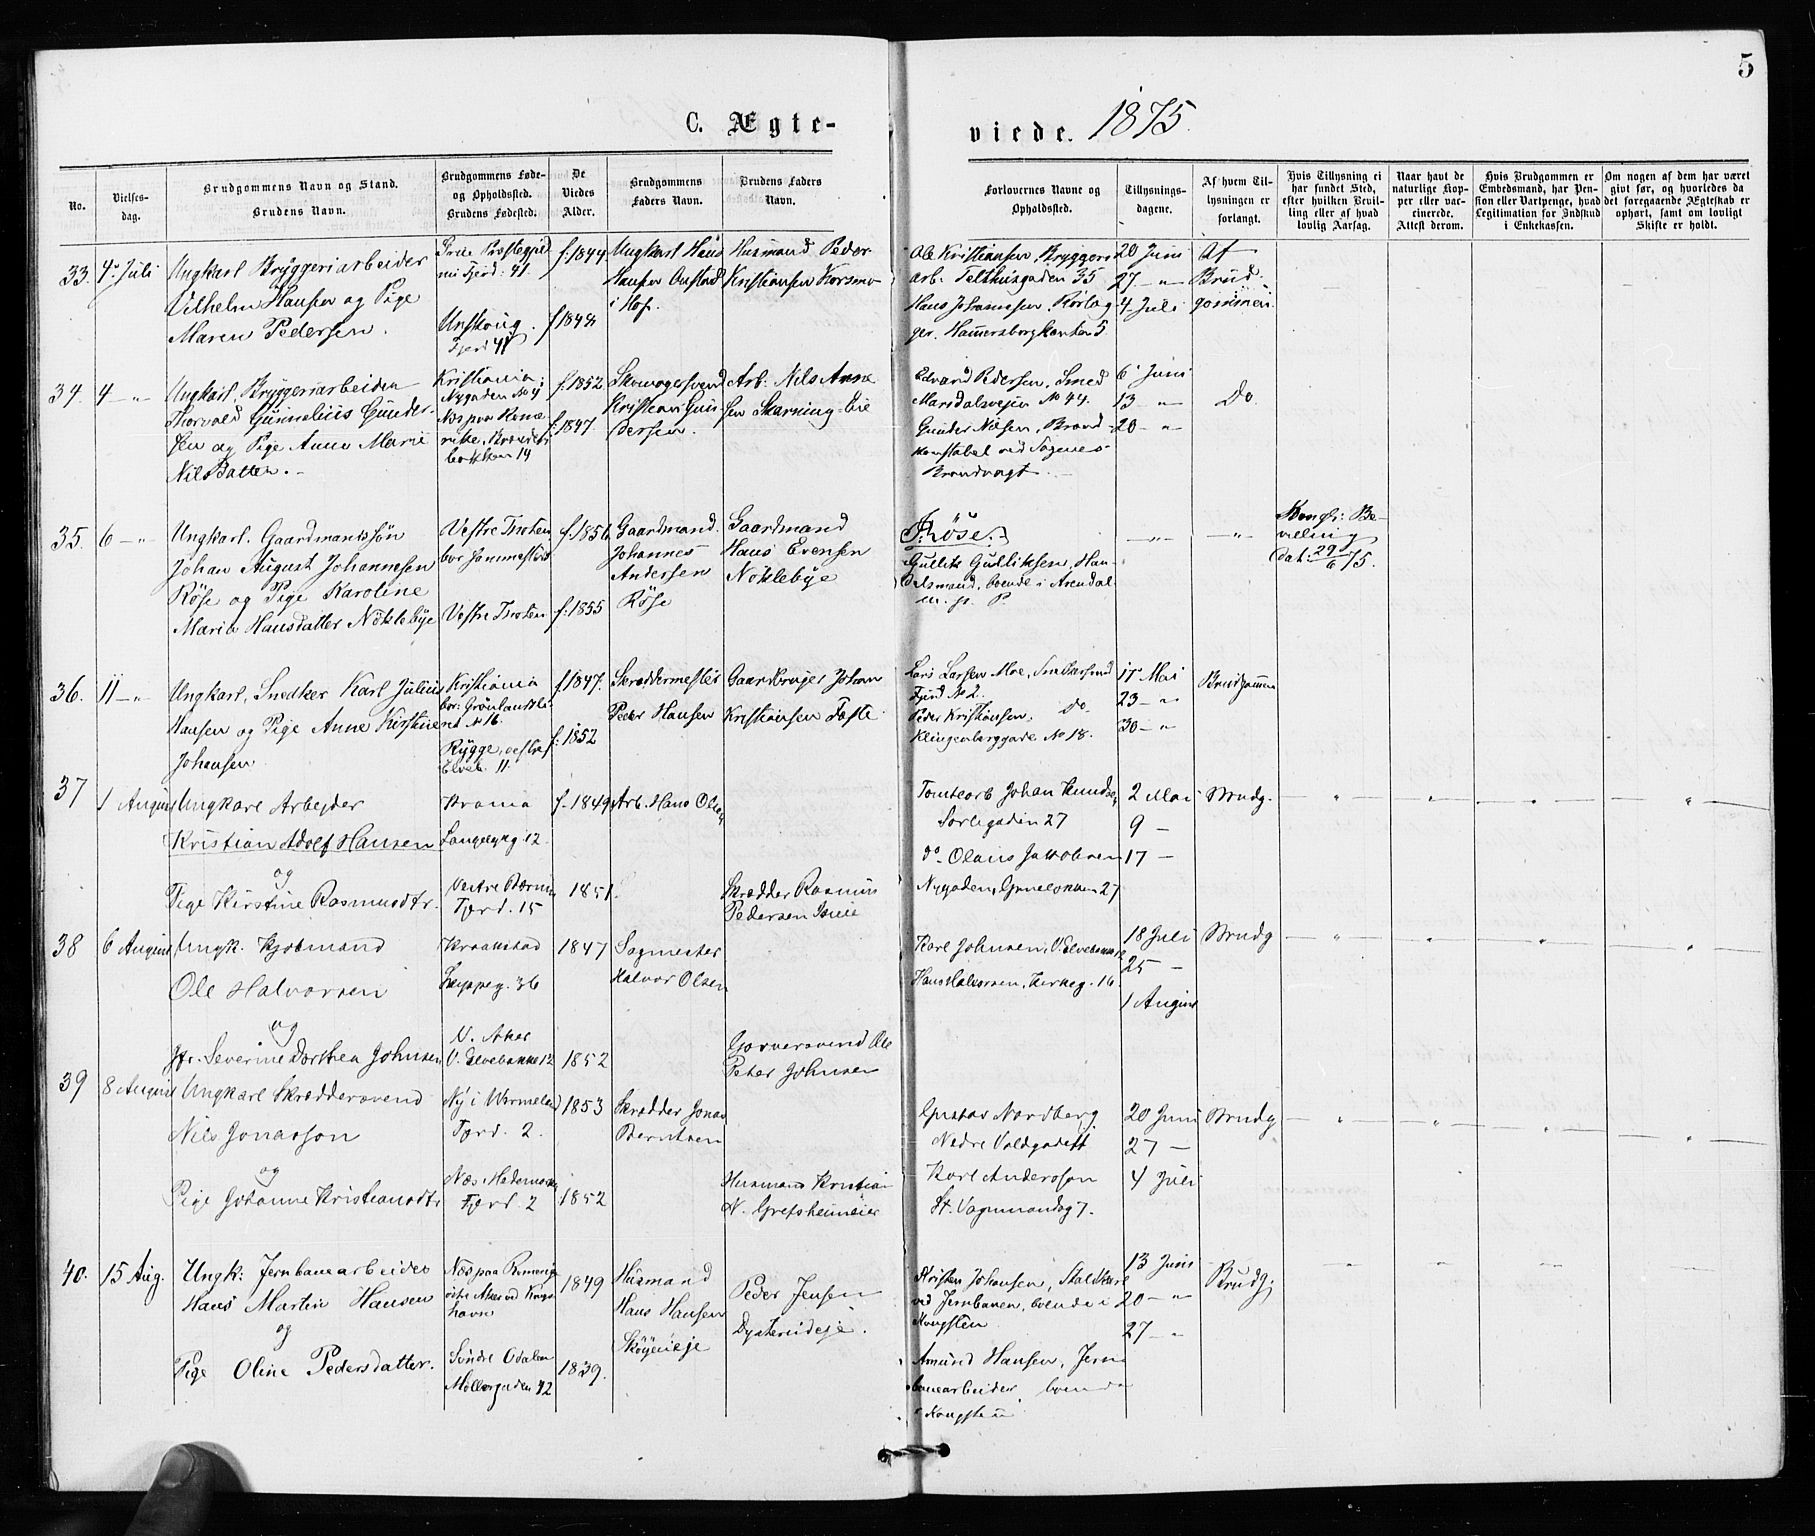 5
C. Ægte-
viede. 1875.
No.
Vielses-
dag.
Brudgommens Navn og Stand.
Brudens Navn.
Brudgommens Føde-
og Opholdssted.
Brudens Fødested.
De
Viedes
Alder.
Brudgommens
Faders Navn.
Brudens Faders
Navn.
Forlovernes Navne og
Opholdssted.
Tillysnings-
dagene.
Af hvem Til-
lysningen er
forlangt.
Hvis Tillysning ei
har fundet Sted,
efter hvilken Bevil-
ling eller af hvad
lovlig Aarsag.
Naar havt de
naturlige Kop-
per eller vac-
cinerede.
Attest derom.
Hvis Brudgommen er
Embedsmand, har Pen-
sion eller Vartpenge, hvad
Legitimation for Indskud
i Enkekassen.
Om nogen af dem har været
givt før, og hvorledes da
det foregaaende Ægteskab er
ophørt, samt om lovligt
Skifte er holdt.
33. 4de Juli
Ungkarl Bryggeriarbeider
Vilhelm Hansen og Pige
Maren Pedersen.
Grue Præstegjeld
Fjerd: 41
Fjerd 41
f. 1844
f 1848
Ungkarl Hans
Hansen
i Hof.
Husmand Peder
Kristiansen Korsmo
Ole Kristiansen, Bryggeri
arb. Telthusgaden 35
Hans Johannesen, Rørlæg
ger. Hamersborgkanten 5.
20 Juni
27 - "
4 Juli
Af
Brud-
gommen
34. 4 - "
Ungkarl, Bryggeriarbeider
Thorvald Gunnelius Gunder-
sen og Pige Anne Marie
Nilsdatter.
Kristiania,
Nygaden No 4
Næs paa Rome
rike,
bakken 14
f. 1852
f. 1847.
Skomagersvend
Kristian Gun
dersen.
Arb. Nils Anne
sen Skarning-Eie
Edvard Pedersen, Smed
Maridalsvejen No 44.
Gunder Nilsen, Brand-
konstabel ved Sagenes
Brandvagt.
6 Juni
13 - "
20 - "
Do
35. 6 - "
Ungkarl. Gaardmandssøn
Johan August Johannesen
Røse og Pige Karoline
Marie Hansdatter Nøklebye
Vestre Thoten
Vestre Thoten
f. 1856
f. 1855
Gaardmand
Johannes
Andersen
Røse
Gaardmand
Hans Evensen
Nøklebye
J. Røse.
Gullik Gulliksen, Han
delsmand, boende i Arendal
m. p. P.
- " -
- " -
Kongl: Be-
villing
dat. 29/6 75.
36. 11 - "
Ungkarl, Snedker Karl Julius
Hansen og Pige Anne Kirstine
Johansen
Kristiania
bor: Grønlandsle-
ret No 16.
Rygge, vestre
Elveb. 11
f. 1847.
f: 1852
Skræddermester
Peder Hansen
Gaardbruger Johan
Kristiansen Tofte
Lars Larsen Moe, Snedkersvend
Fjerd No 2.
Peder Kristiansen, do.
Klingenberggade No 18.
17 Mai
23 - "
30 - "
Brudgommen
37
1 August
Ungkarl Arbejder
Kristian Adolf Hansen
og
Pige Kirstine Rasmusdtr.
Krania
Langelyng. 12
Vestre Bærum
Fjerd. 15
f. 1849
1851.
Arb. Hans Olsen
Skrædder Rasmus
Pedersen
Tomtearb Johan Knudsen
Sorligaden 27
do Olaus Jakobsen
Nygaden, Grünerløkken 27
2 Mai
9 -
17 -
Brudg.
38
6 August
Ungk. Kjøbmand
Ole Halvorsen
og
Jfr. Severine Dorthea Johnsen
Kraakstad
Skippeg. 36
V. Aker
V. Elvebakke 12
1847
1852
Sagmester
Halvor Olsen
Garversvend Ole
Peter Johnsen
Karl Johnsen, V. Elvebakke 12
Hans Halvorsen, Kirkeg. 16
18 Juli
25 -
1 August
Brudg
39
8 August
Ungkarl Skræddersvend
Nils Jonasson
og
Pige Johanne Kristiansdtr
Ny i Vermeland
Fjerd. 2.
Næs Hedemarken
Fjerd. 2
1853
1852
Skrædder Jonas
Berntsen
Husmand Kristian
N. Grefsheimeier
Gustav Nordberg
Nedre Voldgade 11
Karl Andersson
St. Vognmandsg 7.
20 Juni
27 -
4 Juli
Brudg
40.
15 Aug.
Ungk: Jernbanearbeider
Hans Martin Hansen
og
Pige Oline Pedersdatter.
Næs paa Romerige
østre Aker ved Kongs
havn
Søndre Odalen
Møllergaden 42
1849
1839.
Husmand
Hans Hansen
Skøyeneje
Peder Jensen
Dysterudeje.
Kristen Johansen, Staldkarl
ved Jernbanen, boende i
Kongsten
Amund Hansen, Jern
banearbeider, boende
i Kongsten
13 Juni
20 - "
27 - "
Brudg